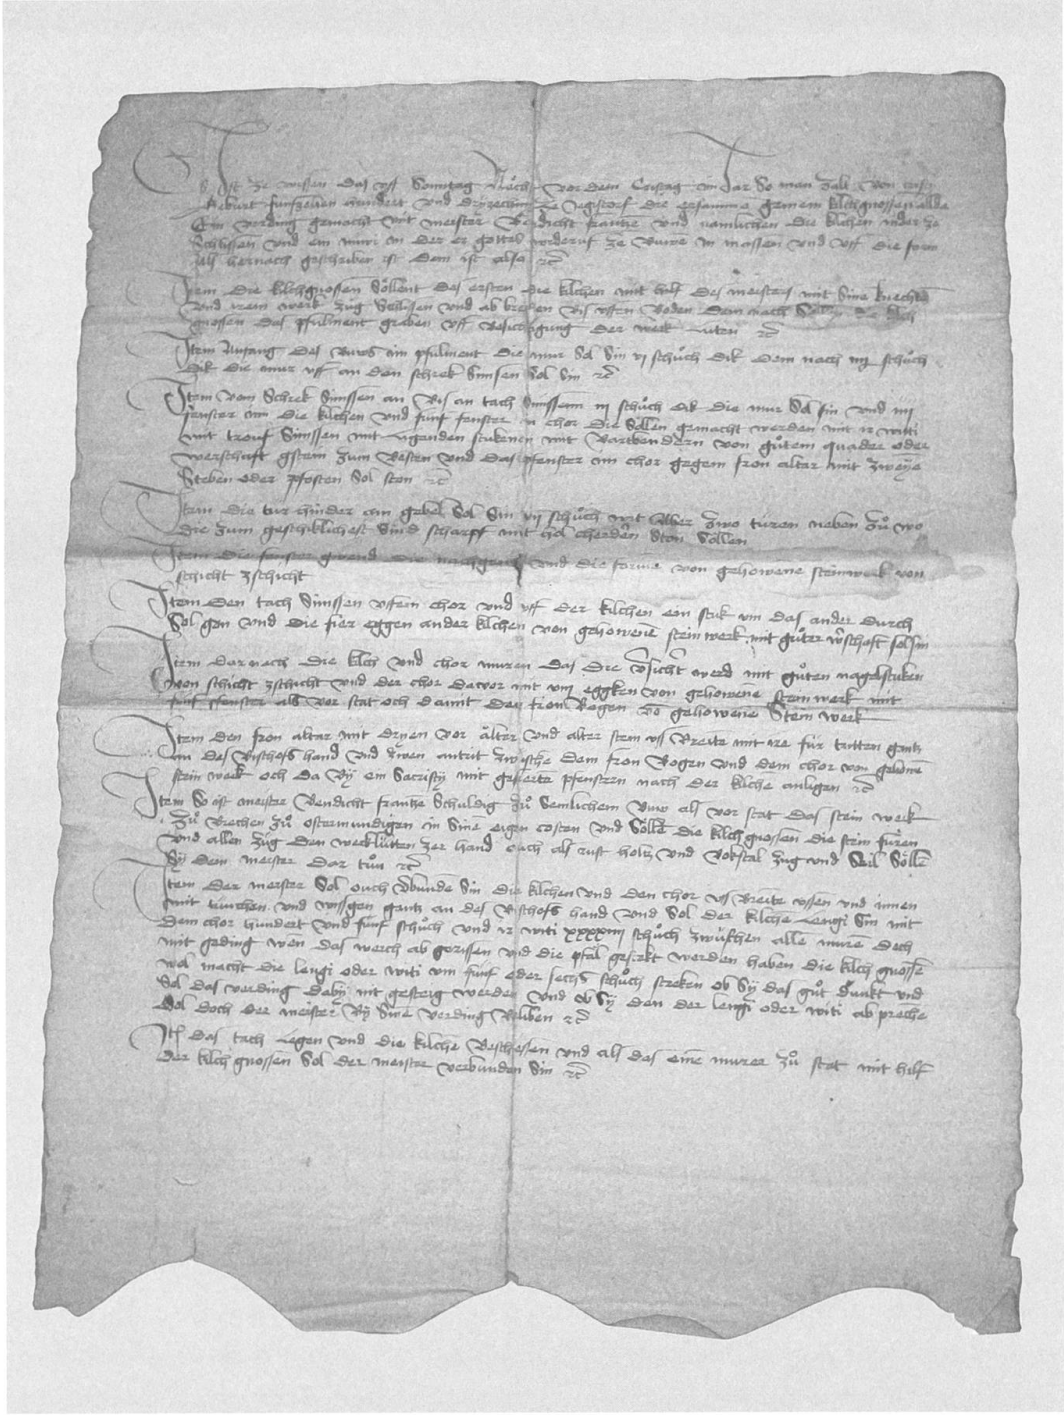 Es ist ze wissen das uff Sonntag Nächst vor dem Meistag im Jar So man zalt von cristi
geburt funfzehen hundert und dryzechni ze Jegistorf die ersamme gemein kilchgnossen allda
Ein verding gemacht mit meister Bendicht frantze und namlichen die kilchen nider ze
Schlissen und ein nuwi in der er gottes widerumb ze buwe In massen und uff die form
als hernach geschriben ist dem ist also etc
Item die kilchgnossen Söllent des ersten die kilchen mit hilf des meisters mit Sine knechte
und irem werk zug Schlisen und ab brechen bis uffen boden Dem nach Söllen die kilch
gnossen das pfulment graben uff besichtigung der werk Luten etc
Item Anfang des buws im pfulment die mur Sol Sin vj schůch dik Dem nach iiij schůch
dik die mur uff an den schrek Simsen Sol Sin etc
Item vom Schrek Simssen an bis an tach Simssenn iij schůch dik die mur Sol sin und iiij
fenster inn die kilchen und funf fenster in chor die Söllen gemacht werden mit ir witi
mit trouf Simssen mit ligenden stukenen mit Wartbendern von gůtem quader oder
werschaft gstein zum besten und das pfenster im chor gegem fron altar mit zweye
Steben oder pfosten Sol ston etc
Item die tur hinder am gebel Sol Sin vij schůch wit Aber zwo türen neben zů wo
die zum geschiklichest Sind scharpf mit hol cherden Ston Söllen
Item die fenster gwend die nachgend und die forme von gehowene steinwerk von
schicht zschicht
Item Den tach Simssen uffem chor und uff der kilchen ein stuk um das ander durch
Sol gan und die fier eggen ander kilchen von gehowene stein werk mit gůter werschaft sol sin
Item darnach die kilch und chor muren das die versicht werd mit gůten nagelstuken
von schicht zschicht und der chor davor mit viij eggken von gehowene Stein werk mit
funf pfenster als vor stat och damit den fron Bogen vo gehowene Stein werk
Item den fron altar mit dryen vor älter und alter stein uss breite mit ire für tritten gantz
an des Bischofs hand und einen antrit zwische dem fron Bogen und dem chor von gehowne
stein werk och da by ein Sacristy mit gefierte pfenstren nach der kilche anligen etc
Item So ist meister Bendicht frantze Schuldig zů Semlichem buw als vor stat das stein werk
zů brechen zů ostermundigen in Sine eigen costen und Sölle die kilch gnossen die stein füren
und allen züg den werklütten zer hand ouch als rust holtz und Bokstal zug und Seil Sölle
Sy dem meister dar tůn etc
Item der meister Sol ouch Verbunde Sin die kilchen und den chor uss breite ussen und innen
mit tünchen und wissgen gantz an des Bischofs hand und Sol der kilche Lengi Sin mit
dem chor hundert und funf schůch und ir witi xxxxiiij schůch zwüschen alle mure doch
mit geding wen das werch ab gerissen und die pfäl gestekt werden haben die kilch gnosse
wol macht die lengi oder witi um funf oder sechs schůch streken ob Sy das gůt dunkt und
Sol das verding daby nit gesteig werden und ob Sy dan der lengi oder witi ab preche
Sol doch der meister by Sine verding Beliben etc
Ite das tach Legen und die kilche Beschiessen und als das eine murer zů stat mit hilf
der kilch gnossen Sol der meister verbunden Sin etc